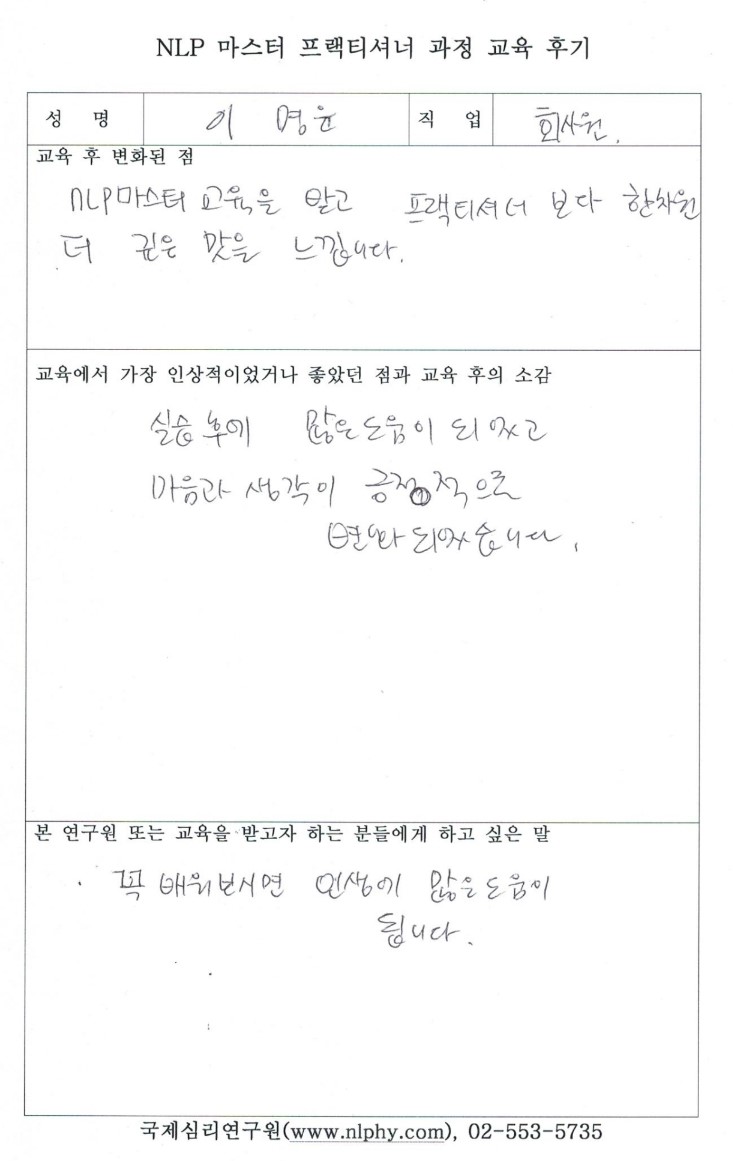 NLP 마스터 프랙티셔너 과정 교육 후기
성 명 이 명윤 직 업 회사원.
교육 후 변화된 점
NLP마스터 교육을 받고 프랙티셔너 보다 한차원
더 깊은 맛을 느낍니다.
교육에서 가장 인상적이었거나 좋았던 점과 교육 후의 소감
실습 후에 많은 도움이 되었고
마음과 생각이 긍정적으로
변화 되었습니다.
본 연구원 또는 교육을 받고자 하는 분들에게 하고 싶은 말
꼭 배워보시면 인생에 많은 도움이
됩니다.
국제심리연구원(www.nlphy.com), 02-553-5735